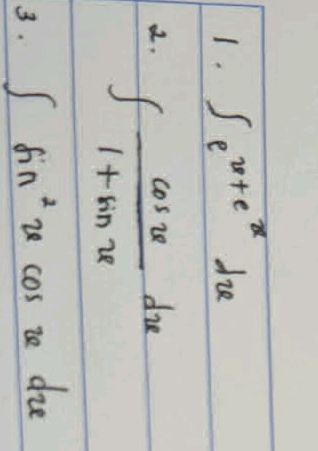 1. ∫ e^{x+e^x} dx
2. ∫ cos x / 1 + sin x dx
3. ∫ sin² x cos x dx